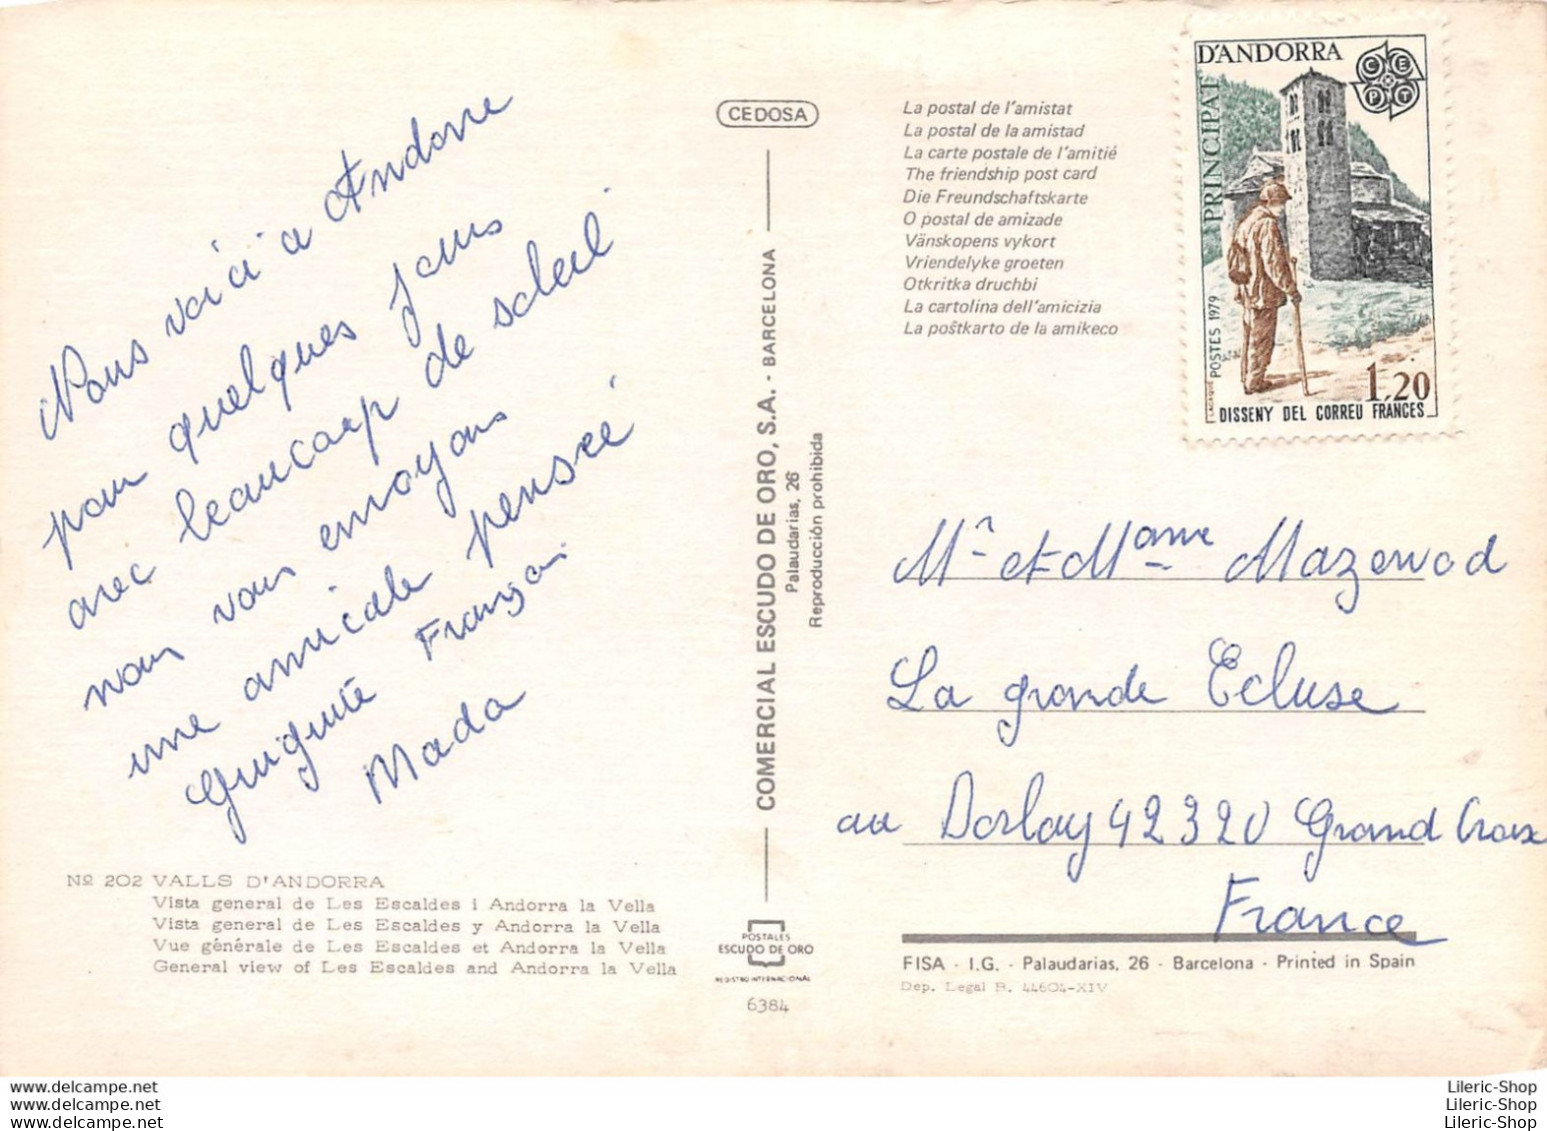 Nous voici a Andorre
pour quelques jours
avec beaucoup de soleil
nous vous envoyons
une amicale pensée
Guiguite François
Mada
Nº 202 VALLS D'ANDORRA
Vista general de Les Escaldes i Andorra la Vella
Vista general de Les Escaldes y Andorra la Vella
Vue générale de Les Escaldes et Andorra la Vella
General view of Les Escaldes and Andorra la Vella
CEDOSA
COMERCIAL ESCUDO DE ORO, S.A. - BARCELONA
Palaudarias, 26
Reproducción prohibida
POSTALES
ESCUDO DE ORO
REGISTRO INTERNACIONAL
6384
La postal de l'amistat
La postal de la amistad
La carte postale de l'amitié
The friendship post card
Die Freundschaftskarte
O postal de amizade
Vänskopens vykort
Vriendelyke groeten
Otkritka druchbi
La cartolina dell'amicizia
La poŝtkarto de la amikeco
PRINCIPAT
D'ANDORRA
CEPT
POSTES 1979
1,20
DISSENY DEL CORREU FRANCES
Mr et Mame Mazenod
La grande Ecluse
au Dorlay 42320 Grand Croix
France
FISA - I.G. - Palaudarias, 26 - Barcelona - Printed in Spain
Dep. Legal B. 44604-XIV
www.delcampe.net
www.delcampe.net
www.delcampe.net
Lileric-Shop
Lileric-Shop
Lileric-Shop